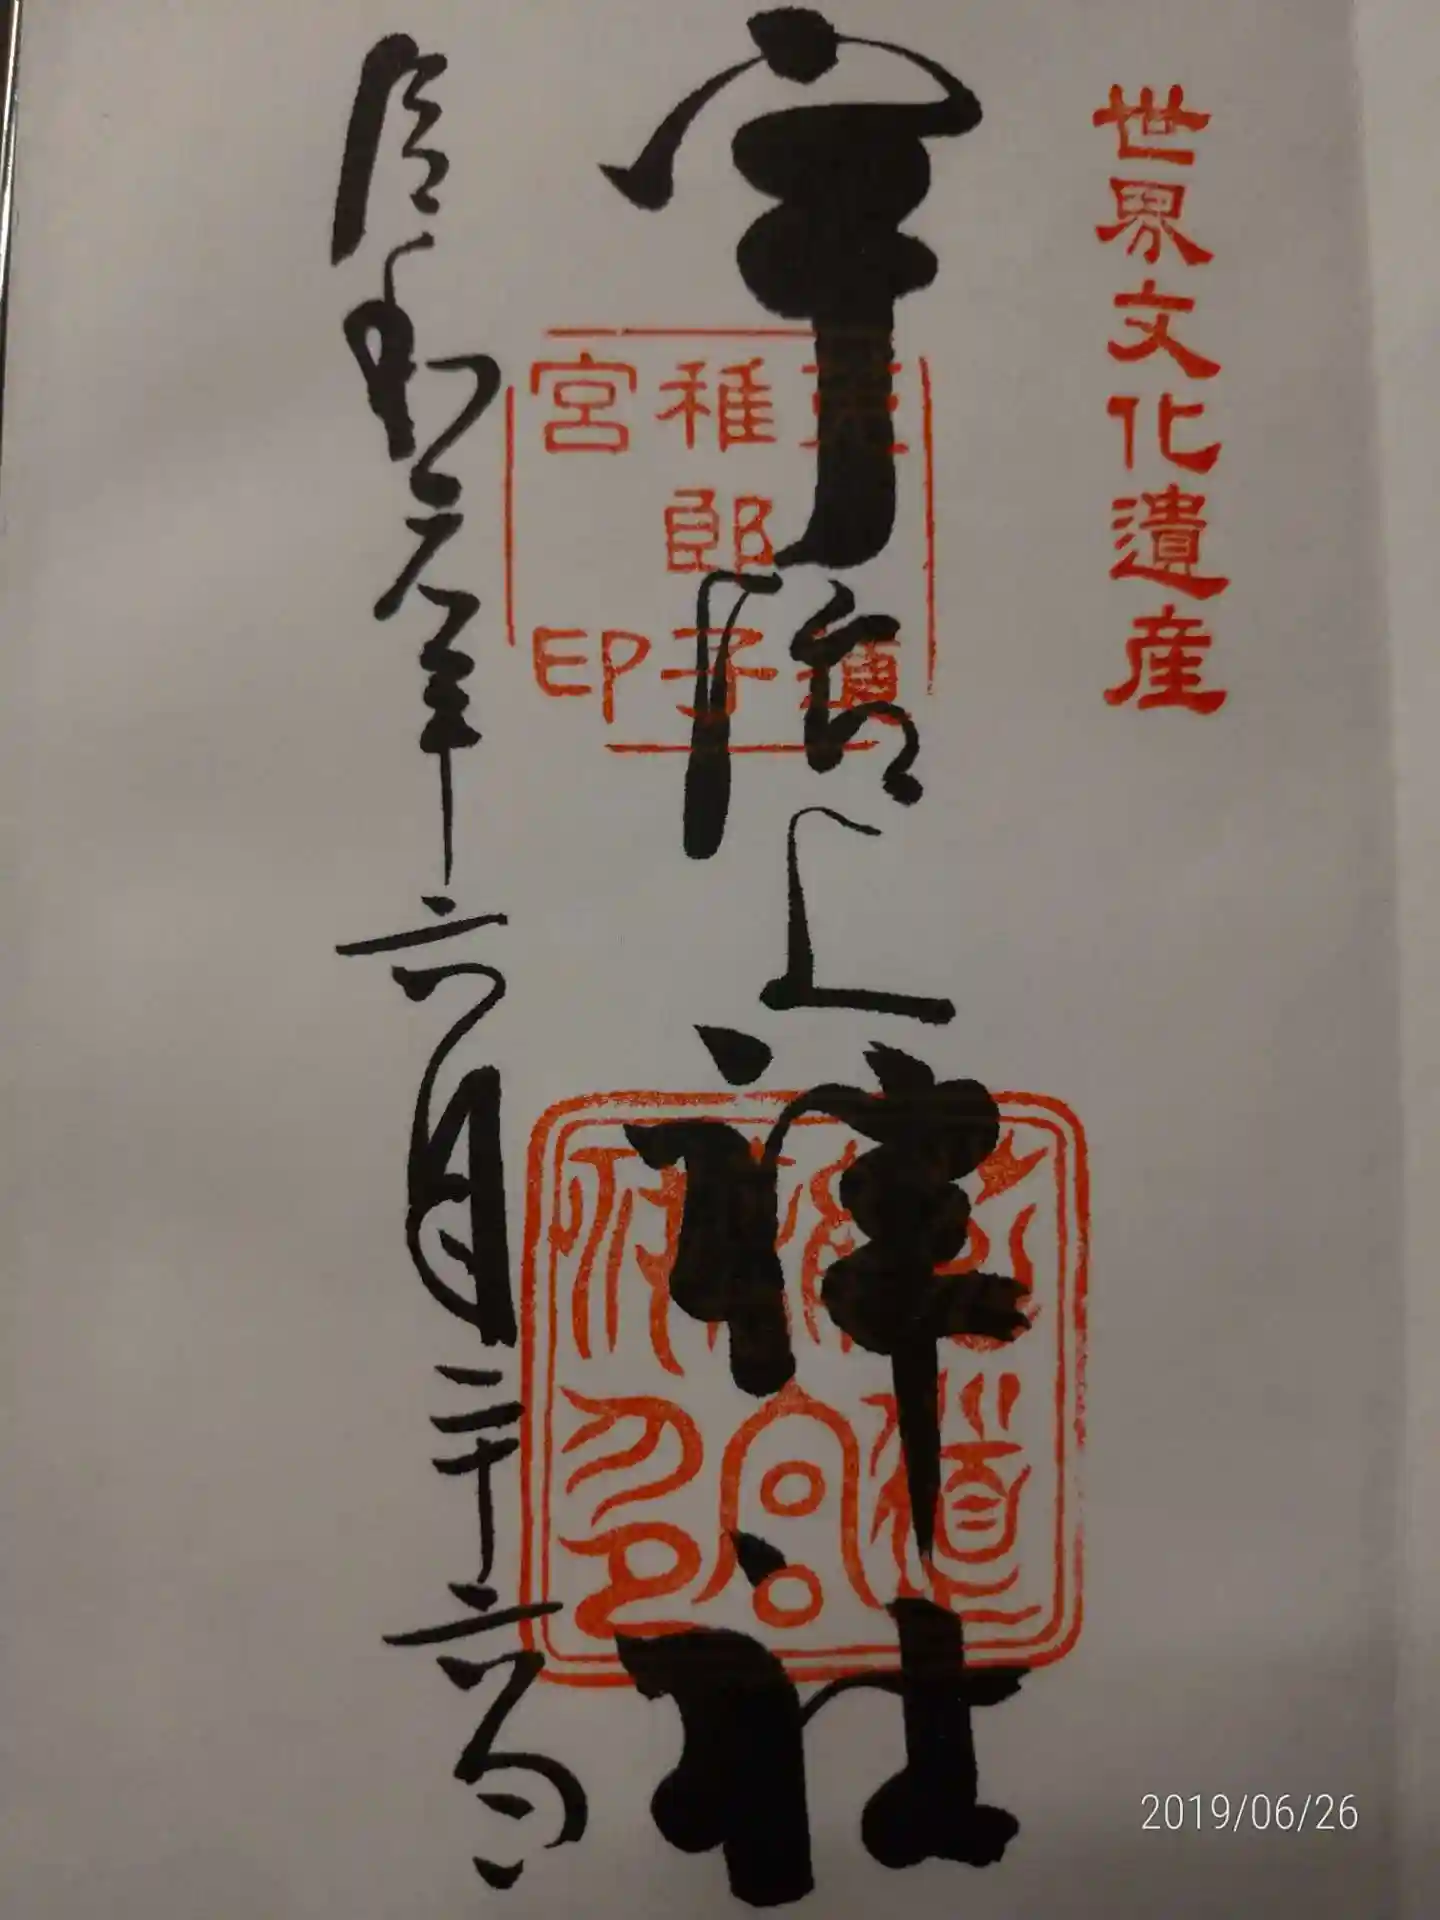 世界文化遺産
宇治上神社
稚郎子
宮印
令和元年六月二十六日
2019/06/26